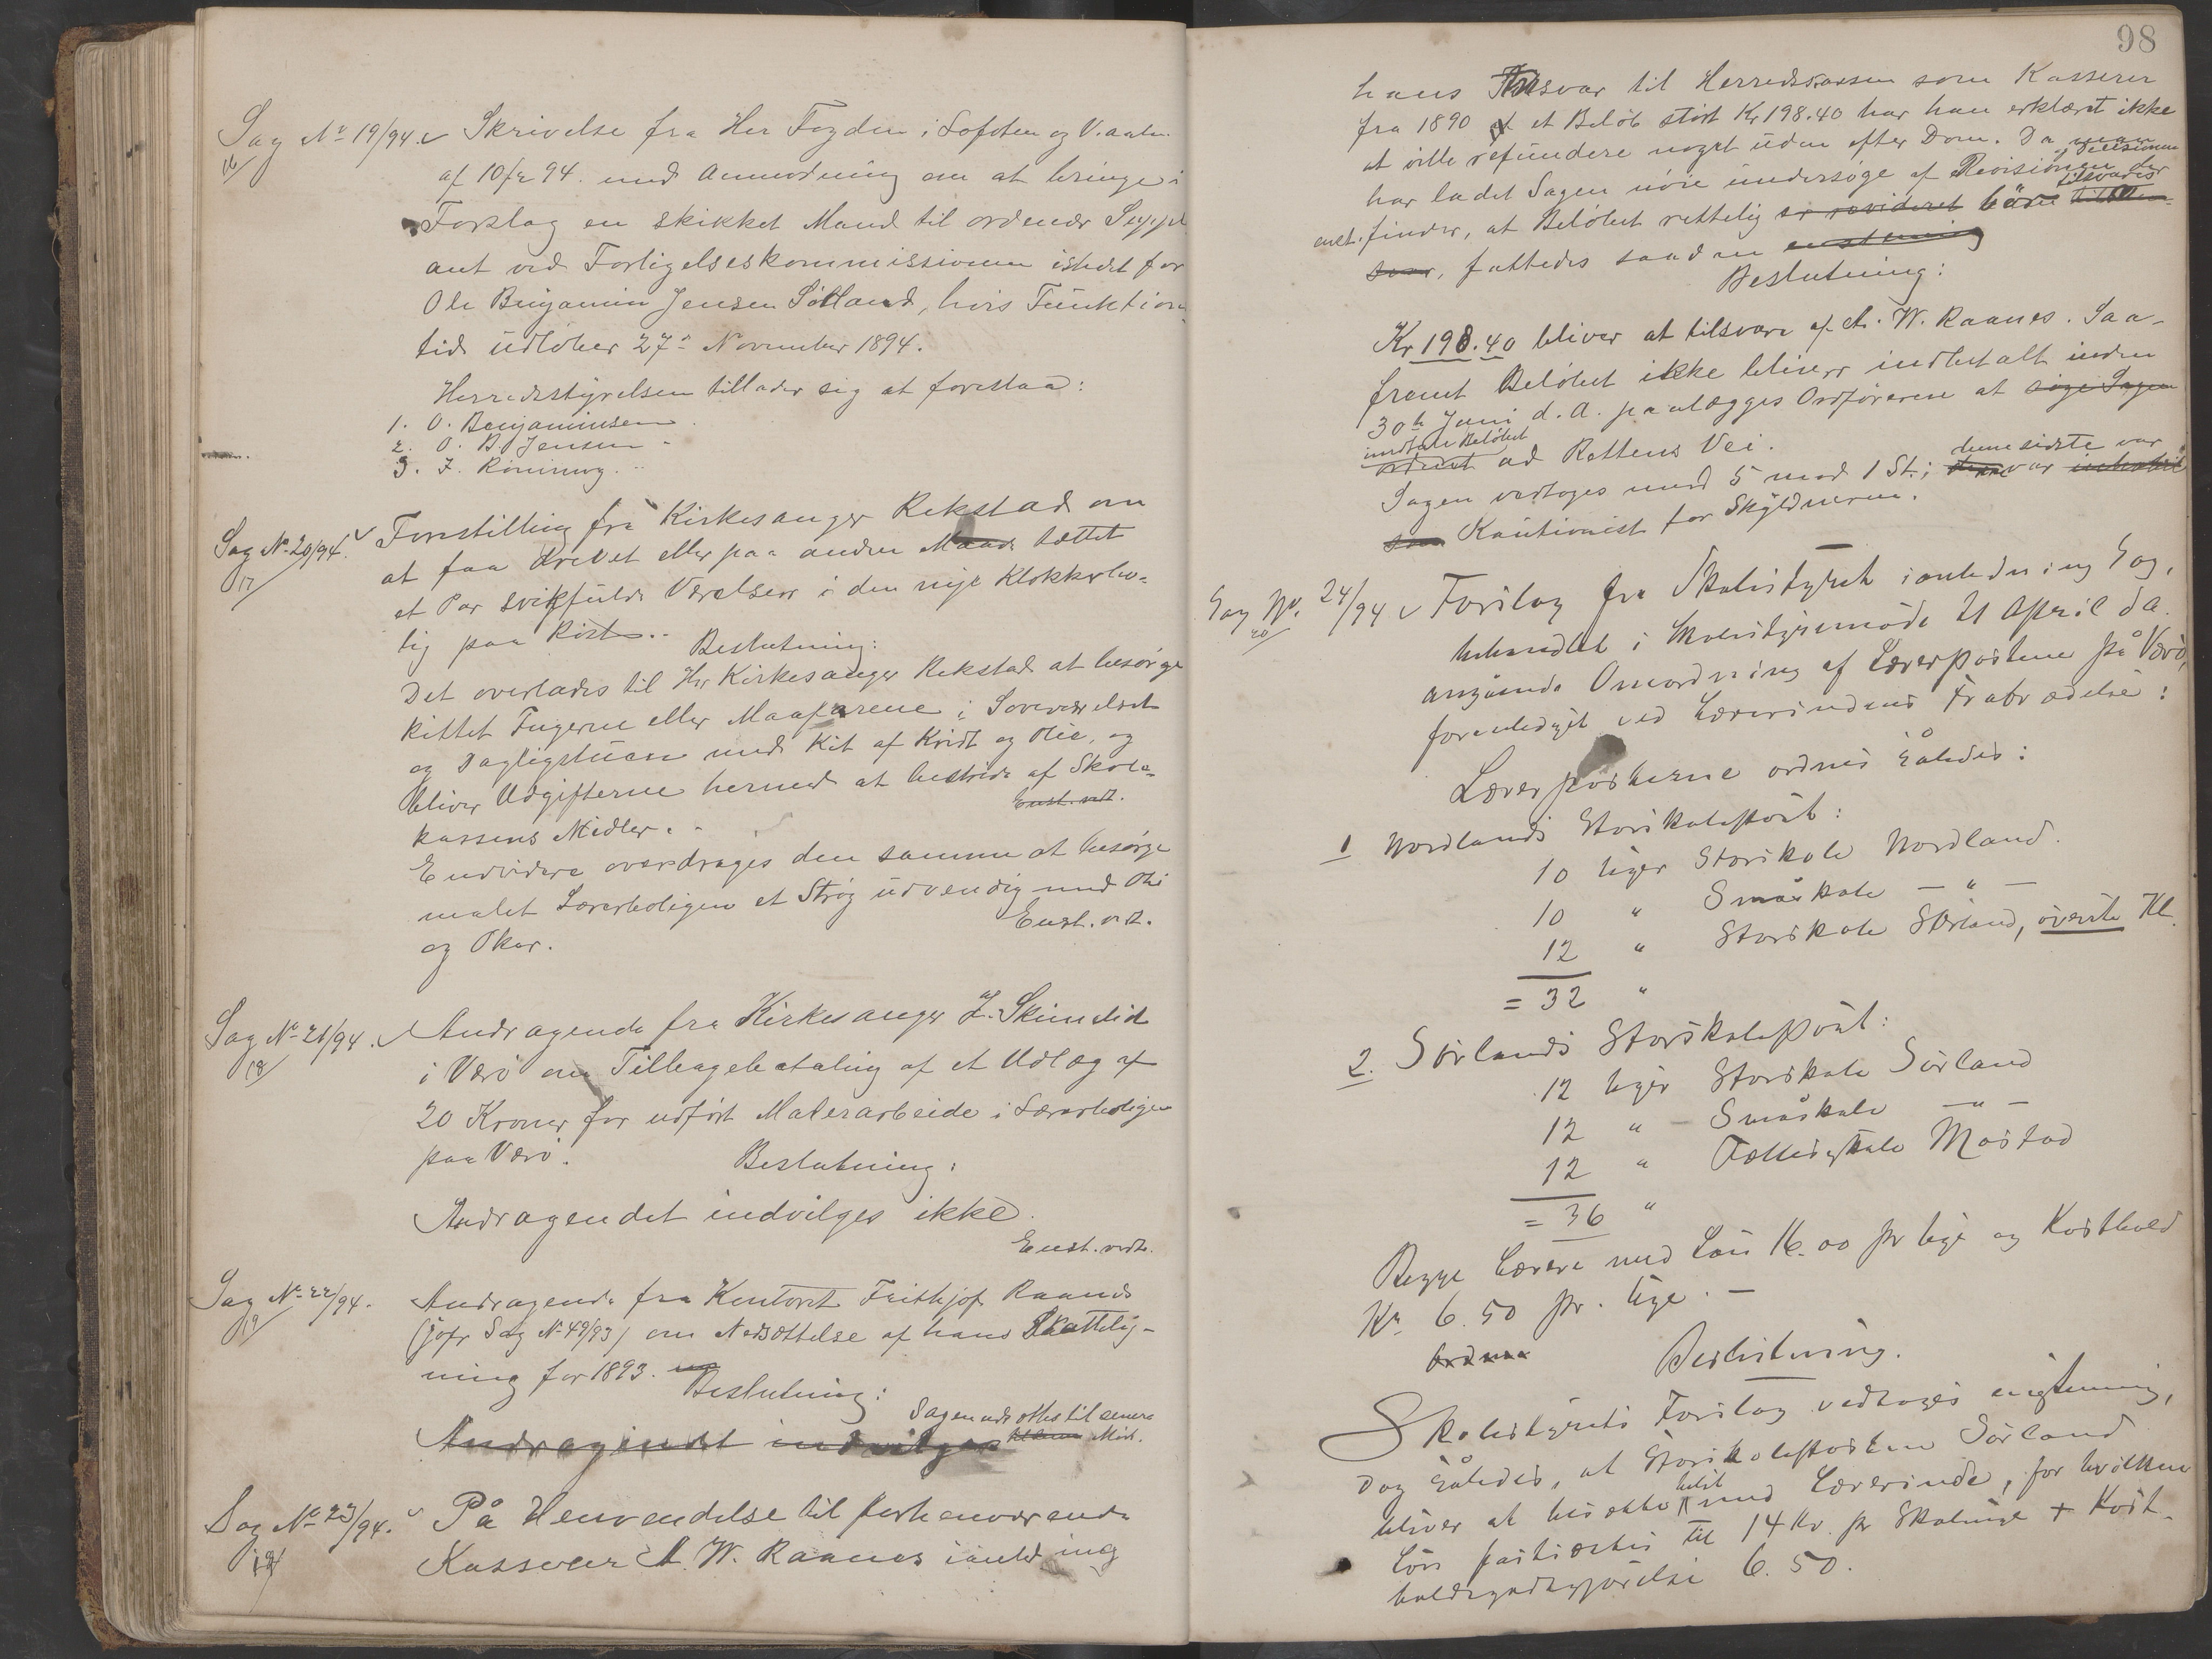 Sag No 19/94. Skrivelse fra Her Fogden i Lofoten og V.aalen
16/
af 10/2 94. med Anmodning om at bringe i
Forslag en skikket Mand til ordenær Suppl
ant ved Forligelseskommissionen istedet for
Ole Benjamin Jensen Sölland, hvis Funktions
tid udlöber 27de November 1894.
Herredsstyrelsen tillader sig at foreslaa:
1. O. Benjaminsen
2. O. B. Jensen
3. J. Röning.
Sag No 20/94. Forestilling fra Kirkesanger Rekstad om
17/
at faa drevet eller paa anden Maade tættet
et Par svikfulde Værelser i den nye Klokkerbo-
lig paa Röst.
Beslutning:
Det overlades til Hr Kirkesanger Rekstad at besörge
kittet Fugerne eller Maafarene i Soveværelset
og Dagligstuen med Kit af Kridt og Olie, og
bliver Udgifterne hermed at bestride af Skole-
Enst. vedt.
kassens Midler.
Endvidere overdrages den samme at besörge
malet Lærerboligen et Strög udvendig med Olie
og Oker.
Enst. vedt.
Sag No 21/94. Andragende fra Kirkesanger Z. Skimelid
18/
i Værö om Tilbagebetaling af et Udlæg af
20 Kroner for udfört Malerarbeide i Lærerboligen
paa Værö.
Beslutning:
Andragendet indvilges ikke.
Enst. vedt.
Sag No 22/94. Andragende fra Kontorist Frithjof Raanes
19/
(jofr Sag No 49/93) om Nedsættelse af hans Skattelig-
ning for 1893.
Beslutning:
Sagen udsættes til senere
Andragendet indvilges Möde.
Sag No 23/94. På Henvendelse til forhenværende
19/
Kasserer A. W. Raanes ianledning
98
hans Ansvar til Herredskassen som Kasserer
fra 1890 af et Belöb stort Kr 198.40 har han erklæret ikke
at ville refundere noget uden efter Dom. Da man
har ladet Sagen nöie undersöge af Revisionen der
tilsvares
finder, at Belöbet rettelig er revideret bör
som, fattedes saadan enstemig
Beslutning:
Kr 198.40 bliver at tilsvare af A. W. Raanes. Saa-
fremt Belöbet ikke bliver indbetalt inden
30te Juni d. A. paalægges Ordföreren at söge Sagen
inddrive Belöbet
ordnet ad Rettens Vei.
denne sidste var
Sagen vedtoges med 5 mod 1 St.; denne var
som Kautionist for Skyldneren.
Sag No. 24/94 Forslag fra Skolestyret ianledning Sag,
20/
behandlet i Skolestyremöde 21 April d a.
angående Omordning af Lærerposterne på Værö,
foranlediget ved Lærerindens Fratrædelse:
Lærerposterne ordnes således:
1 Nordlands Storskolepost:
10 Uger Storskole Nordland.
10 " Småskole — " —
12 " Storskole Sörland, överste Kl.
= 32 "
2. Sörlands Storskolepost:
12 Uger Storskole Sörland
12 " Småskole — " —
12 " Fællesskole Mostad
= 36 "
Begge Lærere med Lön 16.00 pr Uge og Kosthold
Kr 6.50 pr. Uge. —
Beslutning.
Skolestyrets Forslag vedtoges enstemmig,
dog således, at Storskoleposten Sörland
helst
bliver at besætte med Lærerinde, for hvilken
Lön fastsættes til 14 Kr. pr Skoleuge + Kost-
holdsgodtgjörelse 6.50.